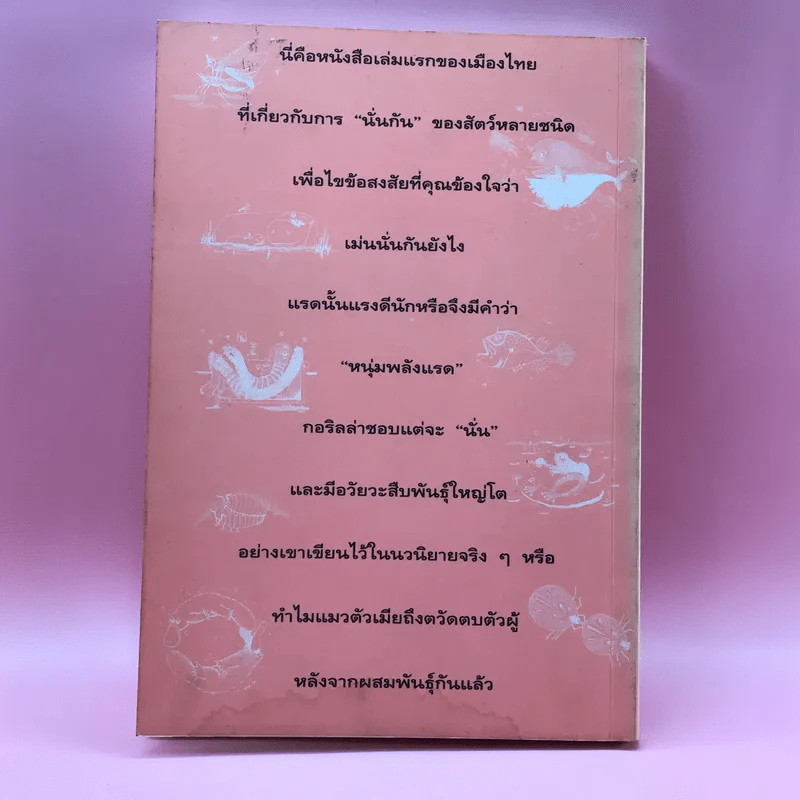 นี่คือหนังสือเล่มแรกของเมืองไทย
ที่เกี่ยวกับการ “นั่นกัน” ของสัตว์หลายชนิด
เพื่อไขข้อสงสัยที่คุณข้องใจว่า
เม่นนั่นกันยังไง
แรดนั้นแรงดีนักหรือจึงมีคำว่า
“หนุ่มพลังแรด”
กอริลล่าชอบแต่จะ “นั่น”
และมีอวัยวะสืบพันธุ์ใหญ่โต
อย่างเขาเขียนไว้ในนวนิยายจริง ๆ หรือ
ทำไมแมวตัวเมียถึงตวัดตบตัวผู้
หลังจากผสมพันธุ์กันแล้ว